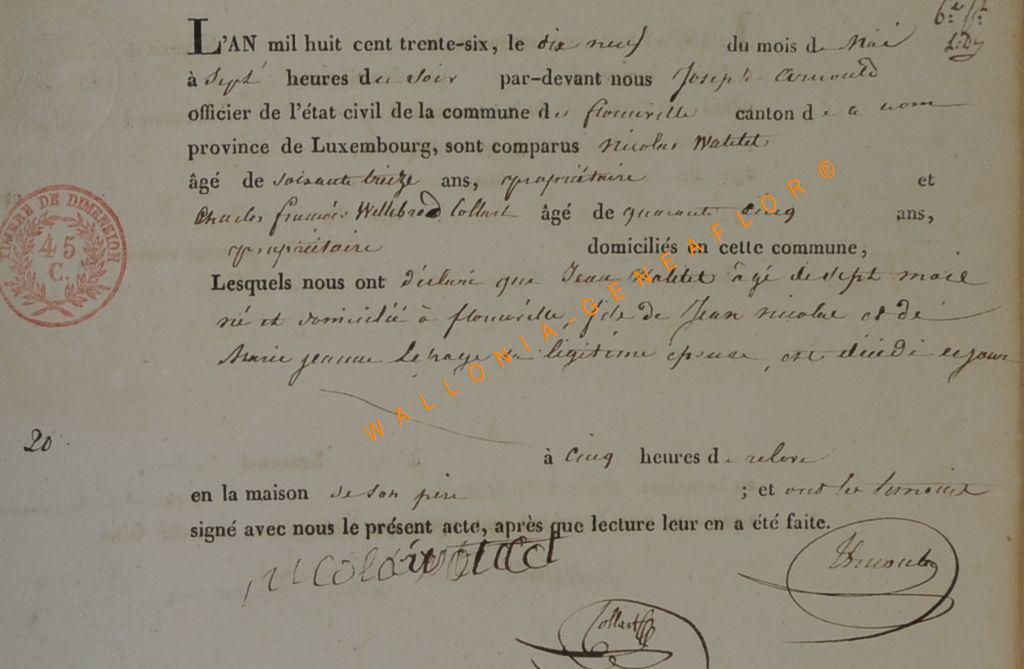 L'AN mil huit cent trente-six, le dix neuf du mois de Mai
à Sept heures du soir par-devant nous Joseph Arnould
officier de l'état civil de la commune de florenville canton de ce nom
province de Luxembourg, sont comparus Nicolas Watelet
âgé de soixante treize ans, propriétaire et
Charles françois Willebrod Collart âgé de quarante Cinq ans,
propriétaire domiciliés en cette commune,
Lesquels nous ont déclaré que Jean Watelet âgé de sept mois
né et domicilié à florenville, fils de Jean Nicolas et de
Marie jeanne Lepage sa légitime épouse, est décédé ce jour
20
à Cinq heures de
en la maison de son père ; et ont les temoins
signé avec nous le présent acte, après que lecture leur en a été faite.
nicolas watelet
Arnould
Collart
TIMBRE DE DIMENSION
45
C.
WALLONIA-GENEAFLOR ®